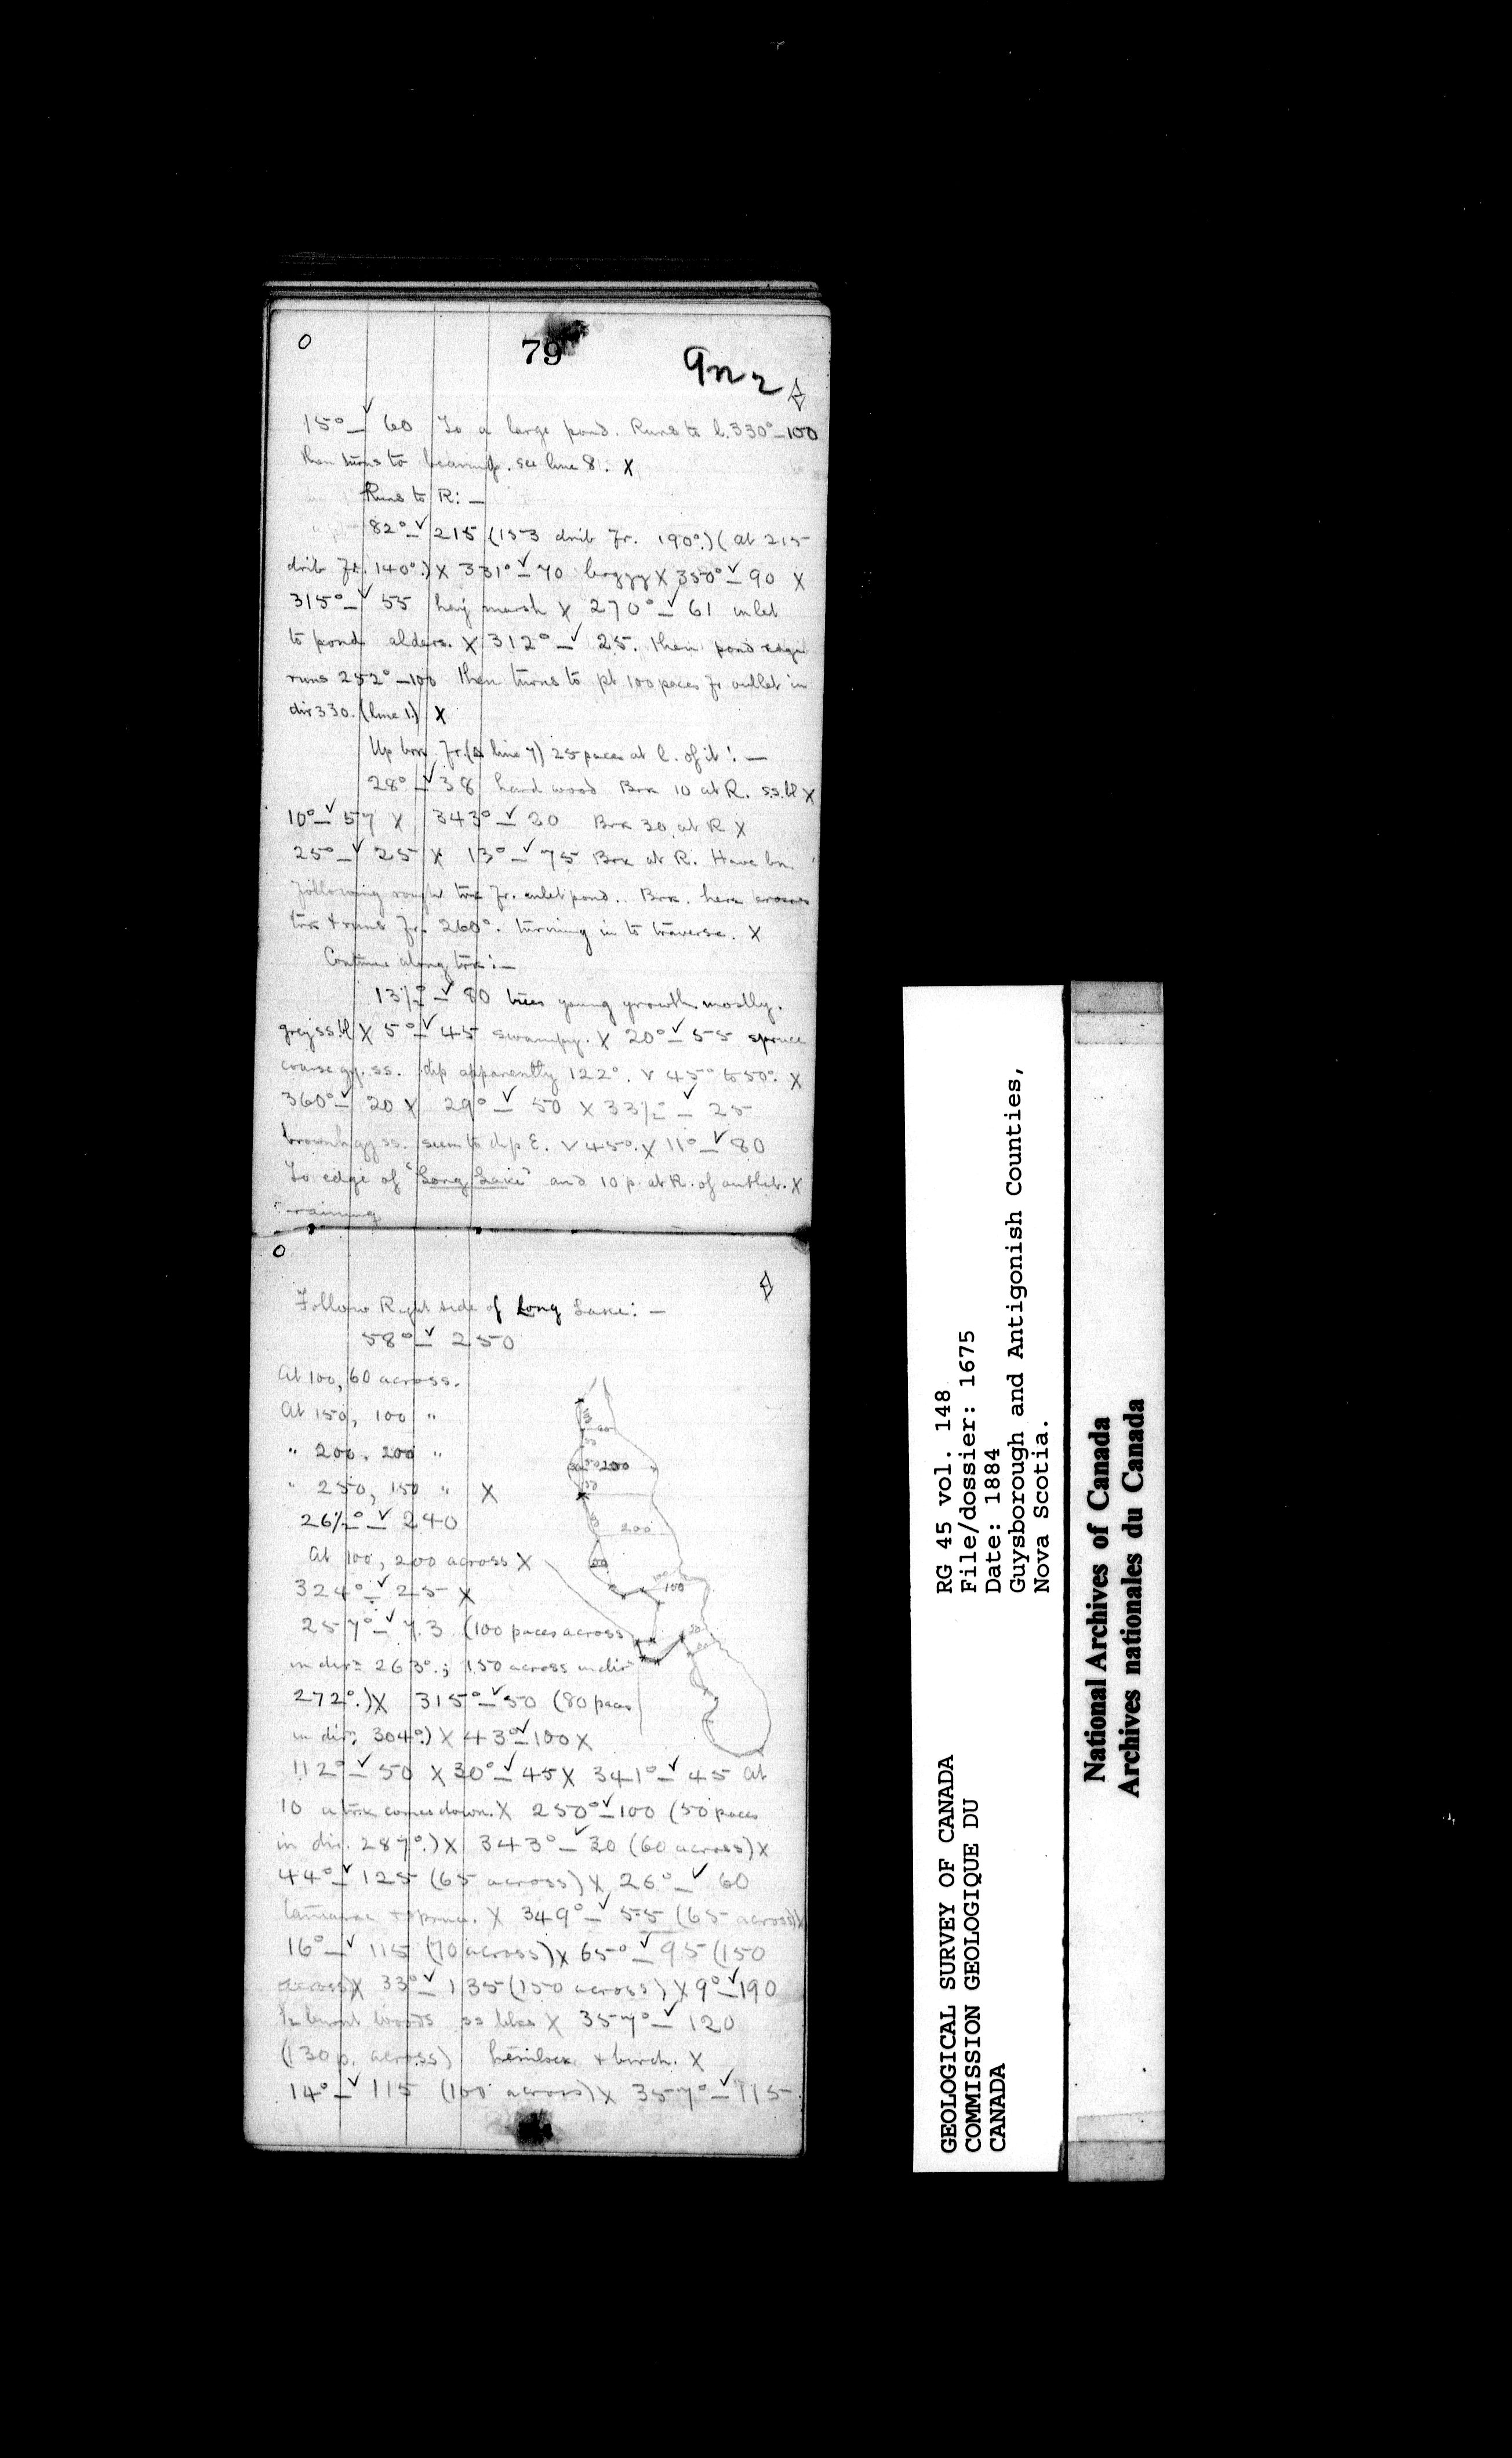 79
15° — 60 To a large pond. Runs to l. 330° — 100
then turns to bearing. see line 8. X
Runs to R: —
82° — 215 (153 drib fr. 190°.) (at 215
drib fr. 140°.) X 331° — 70 boggy X 350° — 90 X
315° — 55 hay marsh X 270° — 61 inlet
to pond alders. X 312° — 25. then pond edge
runs 252° — 100 then turns to pt. 100 paces fr outlet in
dir 330. (line 1.) X
Up brk fr. (line 7) 25 paces at l. of it: —
28° — 38 hard wood Brk 10 at R. s.s. bl X
10° — 57 X 343° — 20 Brk 30 at R X
25° — 25 X 13° — 75 Brk at R. Have bn.
following rough trk fr. inlet pond. Brk. here crosses
trk & runs fr. 260°. turning in to traverse. X
Continue along trk: —
13½° — 80 trees young growth mostly.
grey ss. bl X 5° — 45 swampy. X 20° — 55 spruce
coarse gy. ss. dip apparently 122°. < 45° to 50°. X
360° — 20 X 29° — 50 X 33½ — 25
brownh gy ss. seem to dip E. < 45°. X 11° — 80
To edge of "Long Lake" and 10 p. at R. of outlet. X
raining
Follow Right side of Long Lake: —
58° — 250
At 100, 60 across.
At 150, 100 "
" 200, 200 "
" 250, 150 " X
26½° — 240
At 100, 200 across X
324° — 25 X
257° — 73 (100 paces across
in dirn 263°.; 150 across in dirn
272°.) X 315° — 50 (80 paces
in dirn. 304°.) X 43° — 100 X
112° — 50 X 30° — 45 X 341° — 45 at
10 a trk comes down. X 250° — 100 (50 paces
in dir. 287°.) X 343° — 30 (60 across) X
44° — 125 (65 across) X 26° — 60
tamarac & spruce. X 349° — 55 (65 across) X
16° — 115 (70 across) X 65° — 95 (150
across) X 33° — 135 (150 across) X 9° — 190
burnt woods ss blks X 357° — 120
(130 p. across) hemlock & birch. X
14° — 115 (100 across) X 357° — 115
200
200
100
GEOLOGICAL SURVEY OF CANADA
COMMISSION GEOLOGIQUE DU
CANADA
RG 45 vol. 148
File/dossier: 1675
Date: 1884
Guysborough and Antigonish Counties,
Nova Scotia.
National Archives of Canada
Archives nationales du Canada